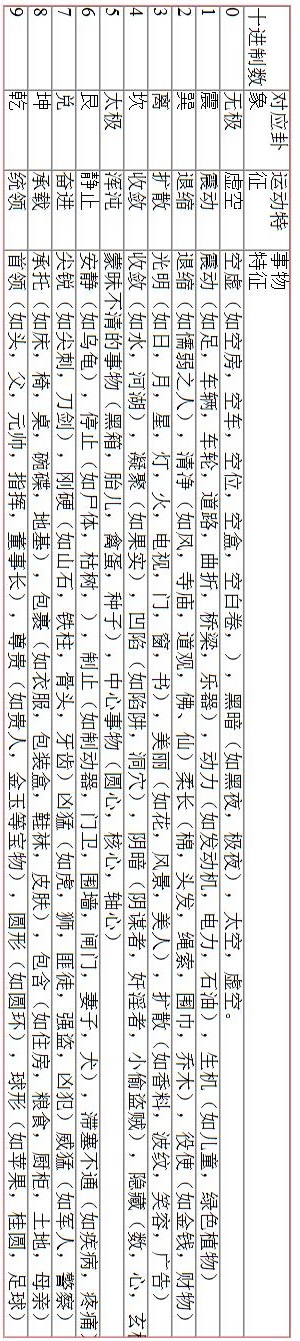 对应卦 运动特 事物
十进制数 象 征 特征
0 无极 虚空 空虚（如空房，空车，空位，空盒，空白卷，），黑暗（如黑夜，极夜），太空，虚空。
1 震 震动 震动（如足，车辆，车轮，道路，曲折，桥梁，乐器），动力（如发动机，电力，石油），生机（如儿童，绿色植物）
2 巽 退缩 退缩（如懦弱之人），清净（如风，寺庙，道观，佛、仙）柔长（棉，头发，绳索，围巾，乔木），役使（如金钱，财物）
3 离 扩散 光明（如日，月，星，灯，火，电视，门，窗，书），美丽（如花，风景，美人），扩散（如香料，波纹，笑容，广告）
4 坎 收敛 收敛（如水，河湖），凝聚（如果实），凹陷（如陷阱，洞穴），阴暗（阴谋者，奸淫者，小偷盗贼），隐藏（数，心，玄
5 太极 浑沌 蒙昧不清的事物（黑箱，胎儿，禽蛋，种子），中心事物（圆心，核心，轴心）
6 艮 静止 安静（如乌龟），停止（如尸体，枯树 ），制止（如制动器，门卫，围墙，闸门 妻子，犬），滞塞不通（如疾病，疼痛）
7 兑 奋进 尖锐（如尖刺，刀剑），刚硬（如山石，铁柱，骨头，牙齿）凶猛（如虎，狮，匪徒，强盗，凶犯）威猛（如军人，警察）
8 坤 承载 承托（如床，椅，桌，碗碟，地基），包裹（如衣服，包装盒，鞋袜，皮肤），包含（如住房，粮食，厨柜，土地，母亲）
9 乾 统领 首领（如头，父，元帅，指挥，董事长），尊贵（如贵人，金玉等宝物），圆形（如圆环），球形（如苹果，桂圆，足球）